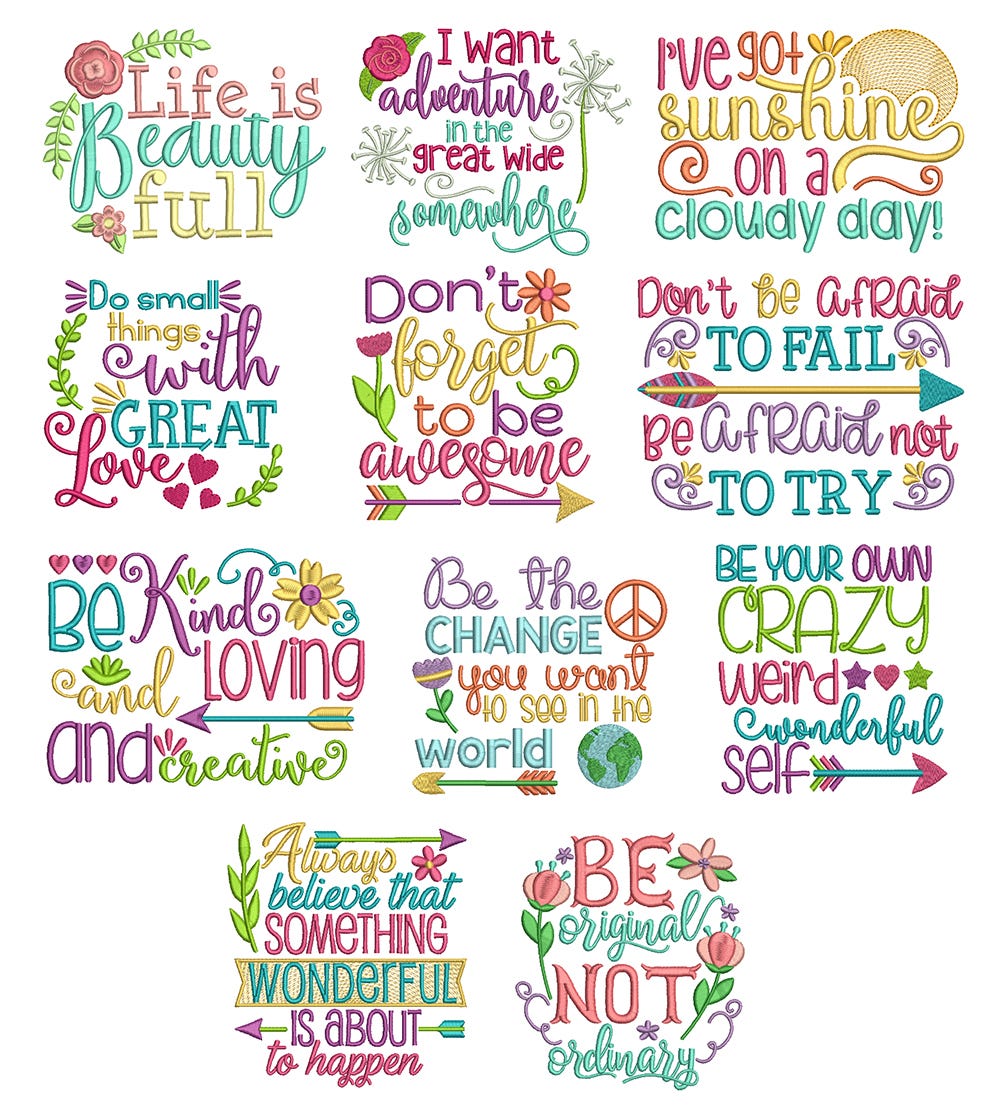 Life is
Beauty
full
I want
adventure
in the
great wide
somewhere
I've got
sunshine
on a
cloudy day!
Do small
things
with
GREAT
Love
Don't
forget
to be
awesome
Don't be afraid
TO FAIL
Be afraid not
TO TRY
Be Kind
and Loving
and creative
Be the
CHANGE
you want
to see in the
world
BE YOUR OWN
CRAZY
weird
wonderful
self
Always
believe that
SOMETHING
WONDERFUL
IS ABOUT
to happen
BE
original
NOT
ordinary